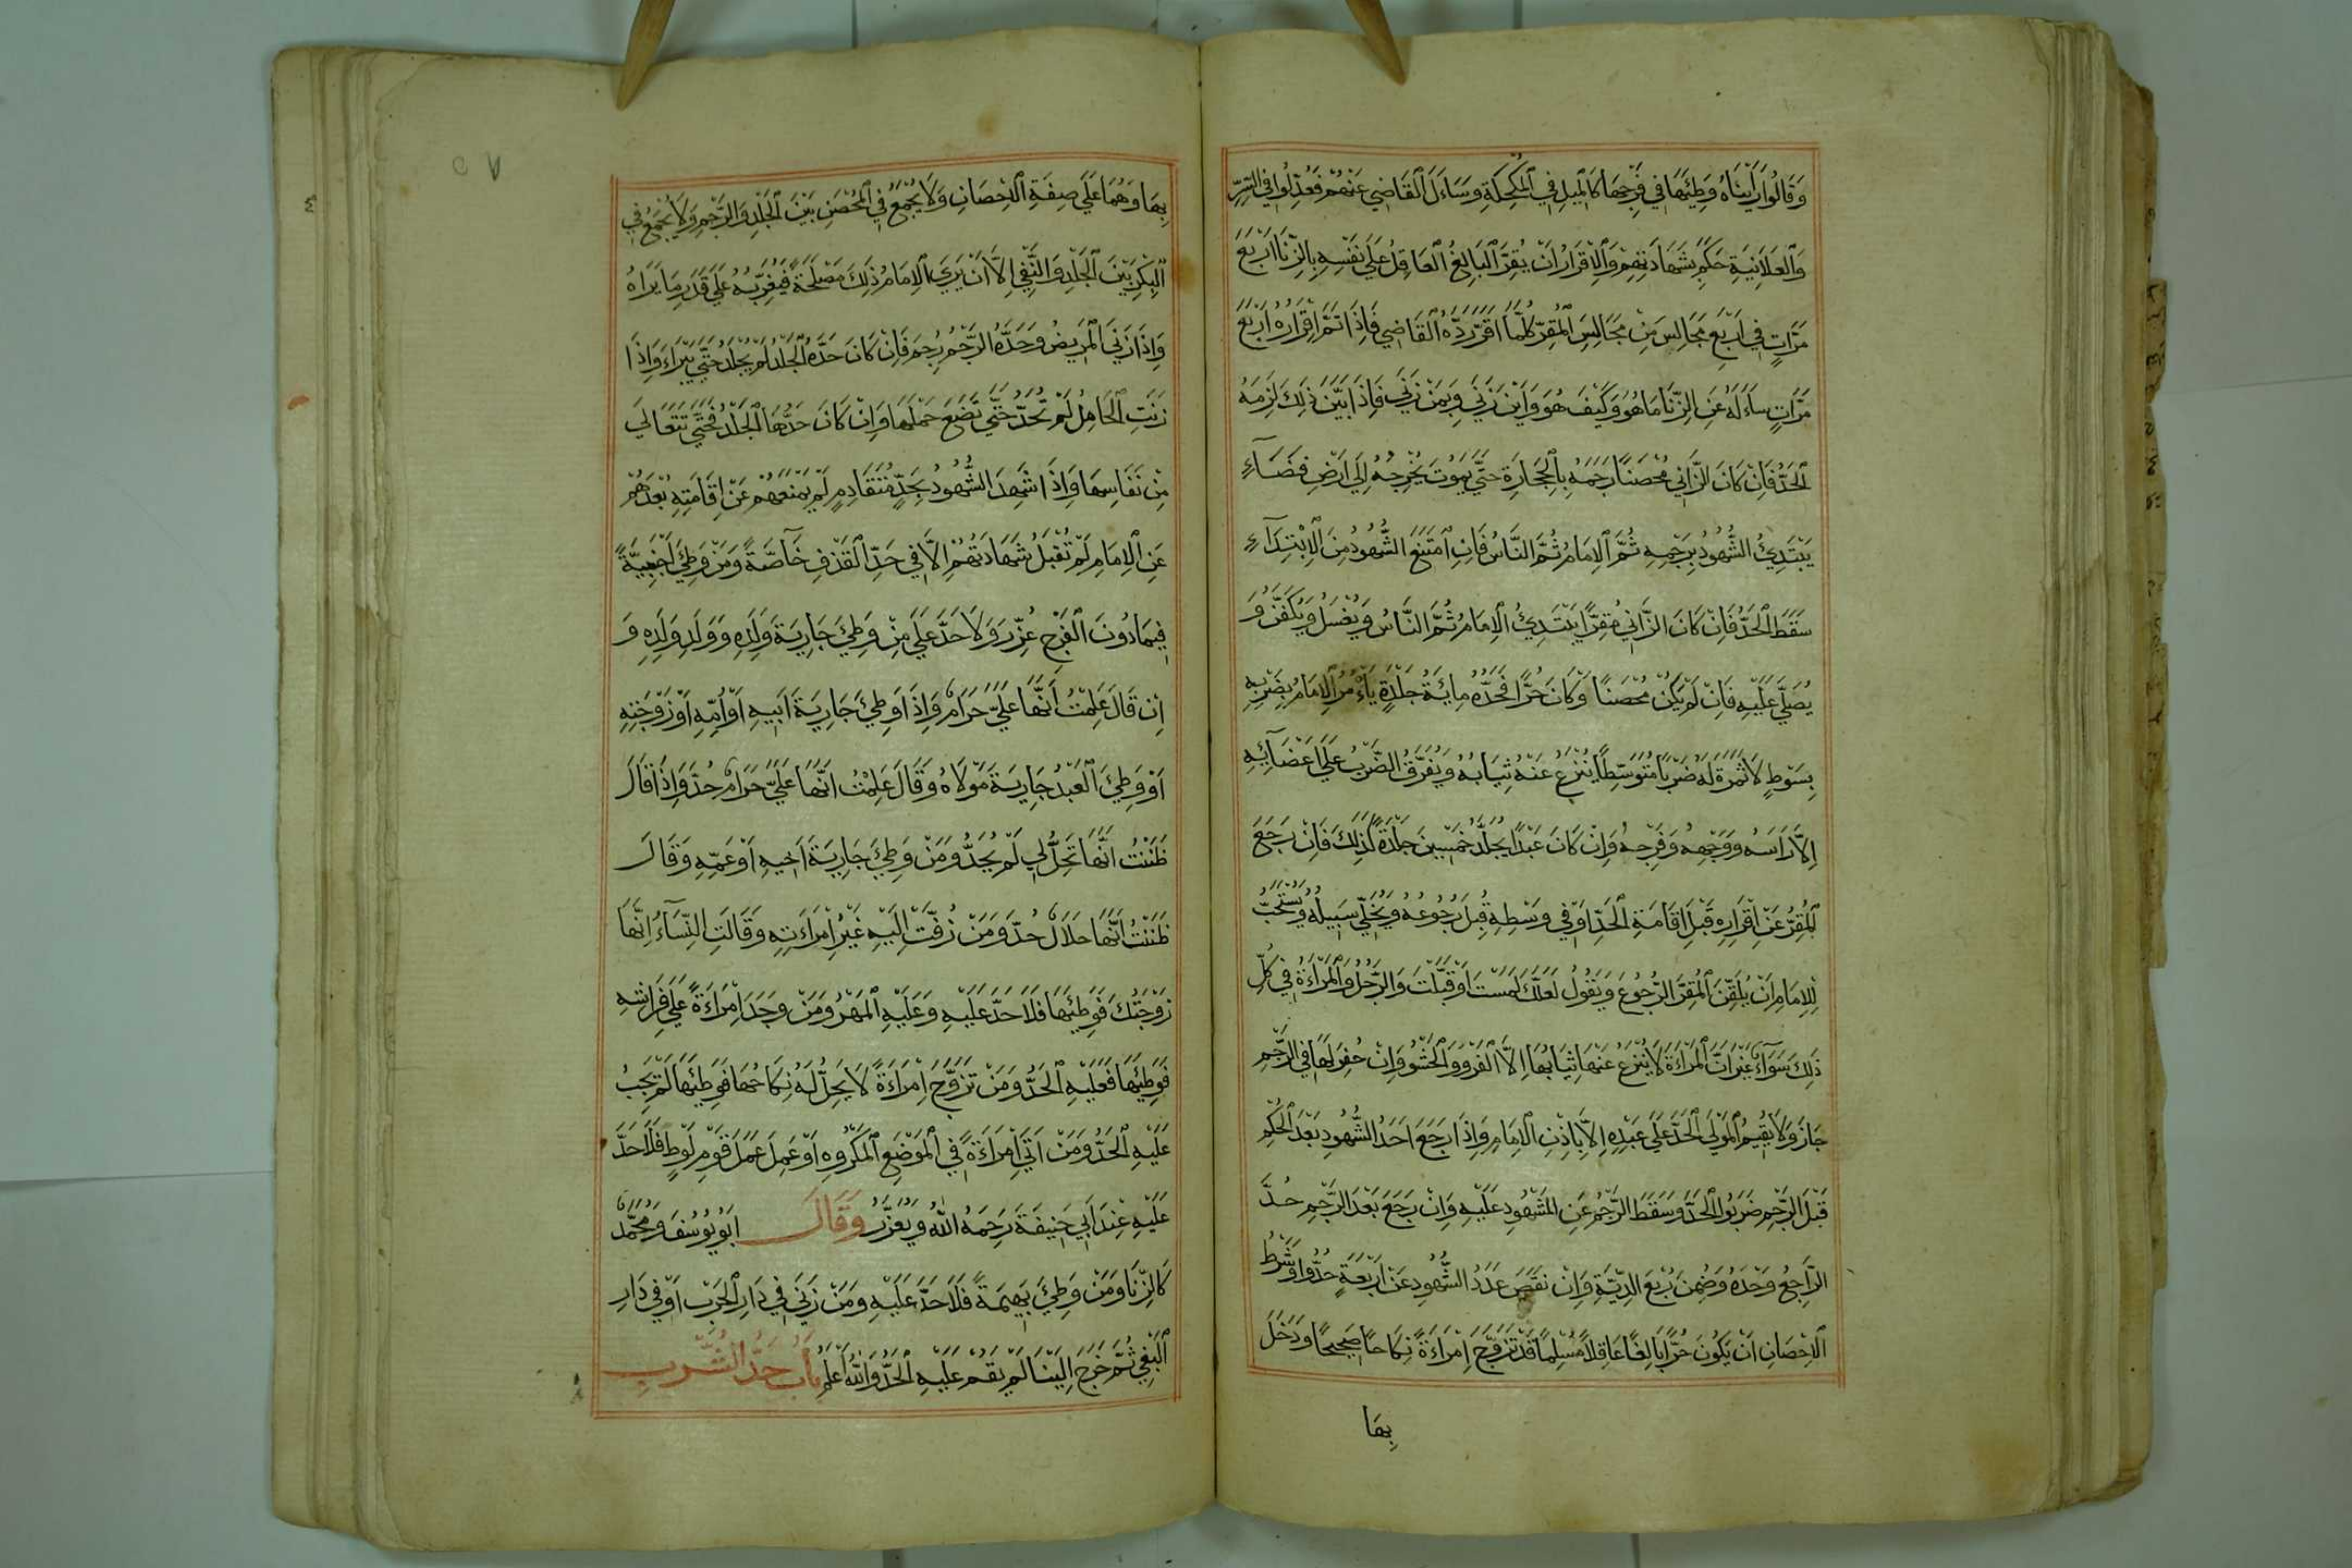 وَقَالُوا رَأَيْنَاهُ وَطِئَهَا فِي فَرْجِهَا كَالْمِيلِ فِي الْمُكْحُلَةِ وَسَاءَلَ الْقَاضِي عَنْهُمْ فَعُدِّلُوا فِي السِّرِّ
وَالْعَلَانِيَةِ حَكَمَ بِشَهَادَتِهِمْ وَالْاِقْرَارُ اَنْ يُقِرَّ الْبَالِغُ الْعَاقِلُ عَلَي نَفْسِهِ بِالزِّنَا اَرْبَعَ
مَرَّاتٍ فِي اَرْبَعِ مَجَالِسَ مِنْ مَجَالِسِ الْمُقِرِّ كُلَّمَا اَقَرَّ رَدَّهُ الْقَاضِي فَاِذَا تَمَّ اِقْرَارُهُ اَرْبَعَ
مَرَّاتٍ سَاءَلَهُ عَنِ الزِّنَا مَا هُوَ وَكَيْفَ هُوَ وَاَيْنَ زَنَي وَبِمَنْ زَنَي فَاِذَا بَيَّنَ ذَلِكَ لَزِمَهُ
الْحَدُّ فَاِنْ كَانَ الزَّانِي مُحْصَنًا رَجَمَهُ بِالْحِجَارَةِ حَتَّي يَمُوتَ يُخْرِجُهُ اِلَي اَرْضِ فَضَآءٍ
يَبْتَدِئُ الشُّهُودُ بِرَجْمِهِ ثُمَّ الْاِمَامُ ثُمَّ النَّاسُ فَاِنِ امْتَنَعَ الشُّهُودُ مِنَ الْاِبْتِدَآءِ
سَقَطَ الْحَدُّ فَاِنْ كَانَ الزَّانِي مُقِرًّا يَبْتَدِئُ الْاِمَامُ ثُمَّ النَّاسُ وَيُغْسَلُ وَيُكَفَّنُ وَ
يُصَلَّي عَلَيْهِ فَاِنْ لَمْ يَكُنْ مُحْصَنًا وَكَانَ حُرًّا فَحَدُّهُ مِائَةُ جَلْدَةٍ يَأْمُرُ الْاِمَامُ بِضَرْبِهِ
بِسَوْطٍ لَا ثَمَرَةَ لَهُ ضَرْبًا مُتَوَسِّطًا يُنْزَعُ عَنْهُ ثِيَابُهُ وَيُفَرَّقُ الضَّرْبُ عَلَي اَعْضَآئِهِ
اِلَّا رَاسَهُ وَوَجْهِهُ وَفَرْجِهُ وَاِنْ كَانَ عَبْدًا يُجْلَدُ خَمْسِينَ جَلْدَةً كَذَلِكَ فَاِنْ رَجَعَ
الْمُقِرُّ عَنْ اِقْرَارِهِ قَبْلَ اِقَامَةِ الْحَدِّ اَوْ فِي وَسْطِهِ قُبِلَ رُجُوعُهُ وَيُخَلَّي سَبِيلُهُ وَيُسْتَحَبُّ
لِلْاِمَامِ اَنْ يُلَقِّنَ الْمُقِرَّ الرُّجُوعَ وَيَقُولُ لَعَلَّكَ لَمَسْتَ اَوْ قَبَّلْتَ وَالرَّجُلُ وَالْمَرْاَةُ فِي كُلِّ
ذَلِكَ سَوَآءٌ غَيْرَ اَنَّ الْمَرْاَةَ لَا يُنْزَعُ عَنْهَا ثِيَابُهَا اِلَّا الْفَرْوَ وَالْحَشْوُ وَاِنْ حُفِرَ لَهَا فِي الرَّجْمِ
جَازَ وَلَا يُقِيمُ الْمَوْلَي الْحَدَّ عَلَي عَبْدِهِ اِلَّا بِاِذْنِ الْاِمَامِ وَاِذَا رَجَعَ اَحَدُ الشُّهُودِ بَعْدَ الْحُكْمِ
قَبْلَ الرَّجْمِ ضَرَبُوا الْحَدَّ وَسَقَطَ الرَّجْمُ عَنِ الْمَشْهُودِ عَلَيْهِ وَاِنْ رَجَعَ بَعْدَ الرَّجْمِ حُدَّ
الرَّاجِعُ وَحْدَهُ وَضُمِنَ رُبْعَ الدِّيَةِ وَاِنْ نَقَصَ عَدَدُ الشُّهُودِ عَنْ اَرْبَعَةٍ حُدُّوا وَشَرْطُ
الْاِحْصَانِ اَنْ يَكُونَ حُرًّا بَالِغًا عَاقِلًا مُسْلِمًا قَدْ تَزَوَّجَ اِمْرَاَةً نِكَاحًا صَحِيحًا وَدَخَلَ
بِهَا
بِهَا وَهُمَا عَلَي صِفَةِ الْاِحْصَانِ وَلَا يُجْمَعُ فِي الْمُحْصَنِ بَيْنَ الْجَلْدِ وَالرَّجْمِ وَلَا يُجْمَعُ فِي
الْبِكْرِ بَيْنَ الْجَلْدِ وَالنَّفْيِ اِلَّا اَنْ يَرَيَ الْاِمَامُ ذَلِكَ مَصْلَحَةً فَيُغَرِّبُهُ عَلَي قَدَرِ مَا يَرَاهُ
وَاِذَا زَنَيَ الْمَرِيضُ وَحَدُّهُ الرَّجْمُ رُجِمَ فَاِنْ كَانَ حَدُّهُ الْجَلْدُ لَمْ يُجْلَدْ حَتَّي يَبْرَاءَ وَاِذَا
زَنَتِ الْحَامِلُ لَمْ تُحَدَّ حَتَّي تَضَعَ حَمْلَهَا وَاِنْ كَانَ حَدُّهَا الْجَلْدُ فَحَتَّي تَتَعَالَي
مِنْ نَفَاسِهَا وَاِذَا شَهِدَ الشُّهُودُ بِحَدٍّ مُتَقَادِمٍ لَمْ يَمْنَعْهُمْ عَنْ اِقَامَتِهِ بُعْدُهُمْ
عَنِ الْاِمَامِ لَمْ تُقْبَلْ شَهَادَتُهُمْ اِلَّا فِي حَدِّ الْقَذْفِ خَآصَّةً وَمَنْ وَطِيَ اَجْنَبِيَّةً
فِيمَا دُونَ الْفَرْجِ عُزِّرَ وَلَا حَدَّ عَلَي مَنْ وَطِيَ جَارِيَةَ وَلَدِهِ وَوَلَدِ وَلَدِهِ وَ
اِنْ قَالَ عَلِمْتُ اَنَّهَا عَلَيَّ حَرَامٌ وَاِذَا وَطِيَ جَارِيَةَ اَبِيهِ اَوْ اُمِّهِ اَوْ زَوْجَتِهِ
اَوْ وَطِيَ الْعَبْدُ جَارِيَةَ مَوْلَاهُ وَقَالَ عَلِمْتُ اَنَّهَا عَلَيَّ حَرَامٌ حُدَّ وَاِذَا قَالَ
ظَنَنْتُ اَنَّهَا تَحِلُّ لِي لَمْ يُحَدُّ وَمَنْ وَطِيَ جَارِيَةَ اَخِيهِ اَوْ عَمِّهِ وَقَالَ
ظَنَنْتُ اَنَّهَا حَلَالٌ حُدَّ وَمَنْ زُفَّتْ اِلَيْهِ غَيْرُ اِمْرَاَتِهِ وَقَالَتِ النِّسَآءُ اِنَّهَا
زَوْجَتُكَ فَوَطِئَهَا فَلَا حَدَّ عَلَيْهِ وَعَلَيْهِ الْمَهْرُ وَمَنْ وَجَدَ اِمْرَاَةً عَلَي فِرَاشِهِ
فَوَطِئَهَا فَعَلَيْهِ الْحَدُّ وَمَنْ تَزَوَّجَ اِمْرَاَةً لَا يَحِلُّ لَهُ نِكَاحُهَا فَوَطِئَهَا لَمْ يَجِبُ
عَلَيْهِ الْحَدُّ وَمَنْ اَتَي اِمْرَاَةً فِي الْمَوْضَعِ الْمَكْرُوهِ اَوْ عَمِلَ عَمَلَ قَوْمِ لُوطٍ فَلَا حَدَّ
عَلَيْهِ عِنْدَ اَبِي حَنِيفَةَ رَحِمَهُ اللهُ وَيُعَزَّرُ وَقَالَ اَبُو يُوسُفَ وَمُحَمَّدٌ
كَالزِّنَا وَمَنْ وَطِيَ بَهِيمَةً فَلَا حَدَّ عَلَيْهِ وَمَنْ زَنَي فِي دَارِ الْحَرْبِ اَوْ فِي دَارِ
الْبَغْيِ ثُمَّ خَرَجَ اِلَيْنَا لَمْ يَقُمْ عَلَيْهِ الْحَدُّ وَاللهُ اَعْلَمُ بَابُ حَدِّ الشُّرْبِ